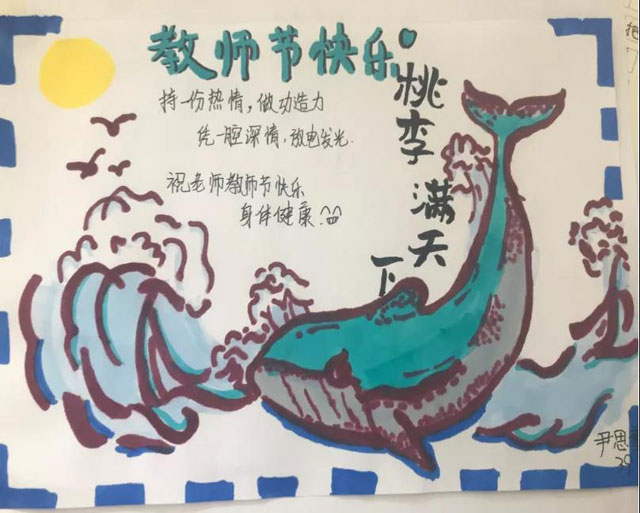 教师节快乐
持一份热情，做功造力
凭一腔深情，放电发光.
祝老师教师节快乐
身体健康!
桃李满天下
尹思